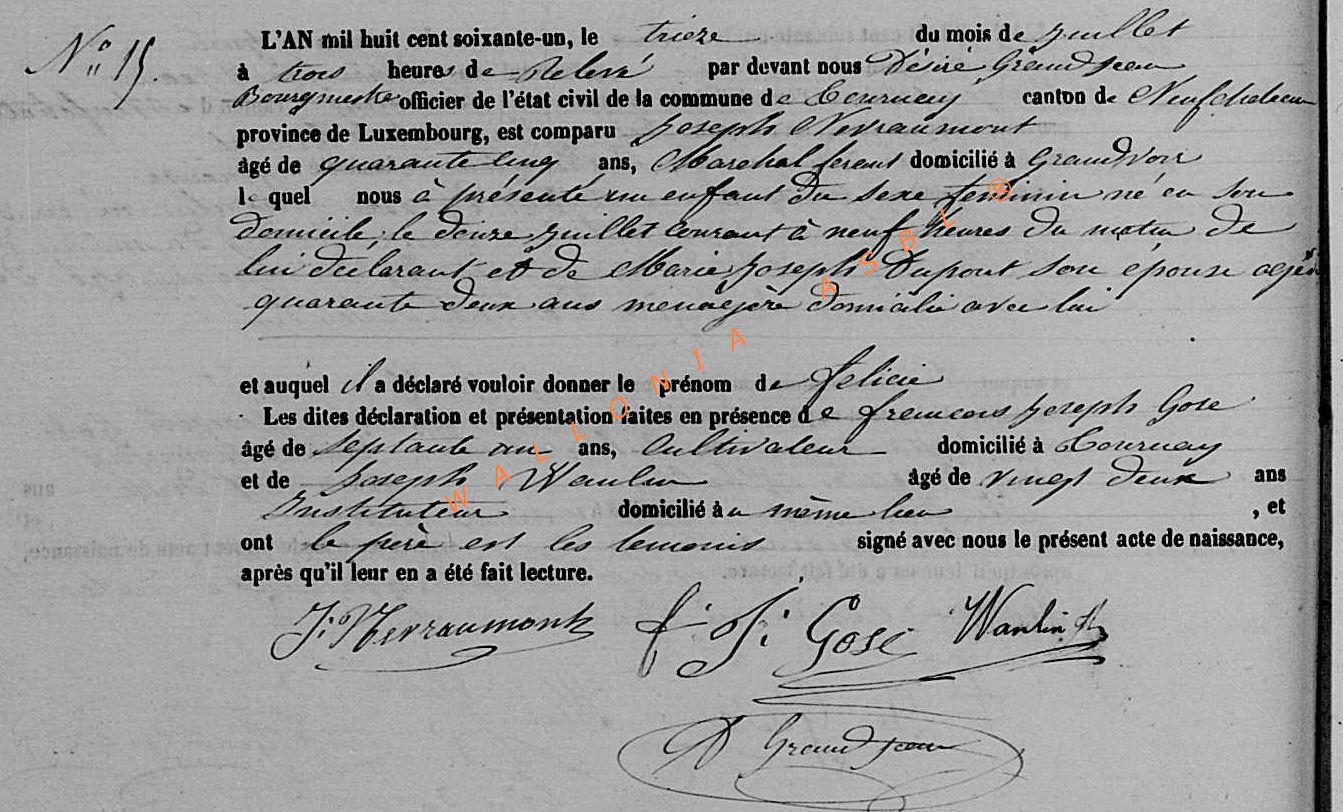 N° 15.
L'AN mil huit cent soixante-un, le treize du mois de juillet
à trois heures de Relevé par devant nous Désiré Grandjean
Bourgmestre officier de l'état civil de la commune de Tournay canton de Neufchateau
province de Luxembourg, est comparu Joseph Nevraumont
âgé de quarante cinq ans, Marechal ferent domicilié à Grandvoir
le quel nous à présenté un enfant du sexe feminin né en son
domicile, le douze juillet courant à neuf heures du matin de
lui declarant et de Marie Joseph Dupont son épouse agée
quarante deux ans menagère domicilié avec lui
et auquel il a déclaré vouloir donner le prénom de felicie
Les dites déclaration et présentation faites en présence de francois joseph Gose
âgé de septante un ans, Cultivateur domicilié à Tournay
et de joseph Wanlin âgé de vingt deux ans
Instituteur domicilié à u même lieu , et
ont le père est les temoins signé avec nous le présent acte de naissance,
après qu'il leur en a été fait lecture.
J. Nevraumont f. J. Gose Wanlin
D Grandjean
WALLONIA ASBL ®